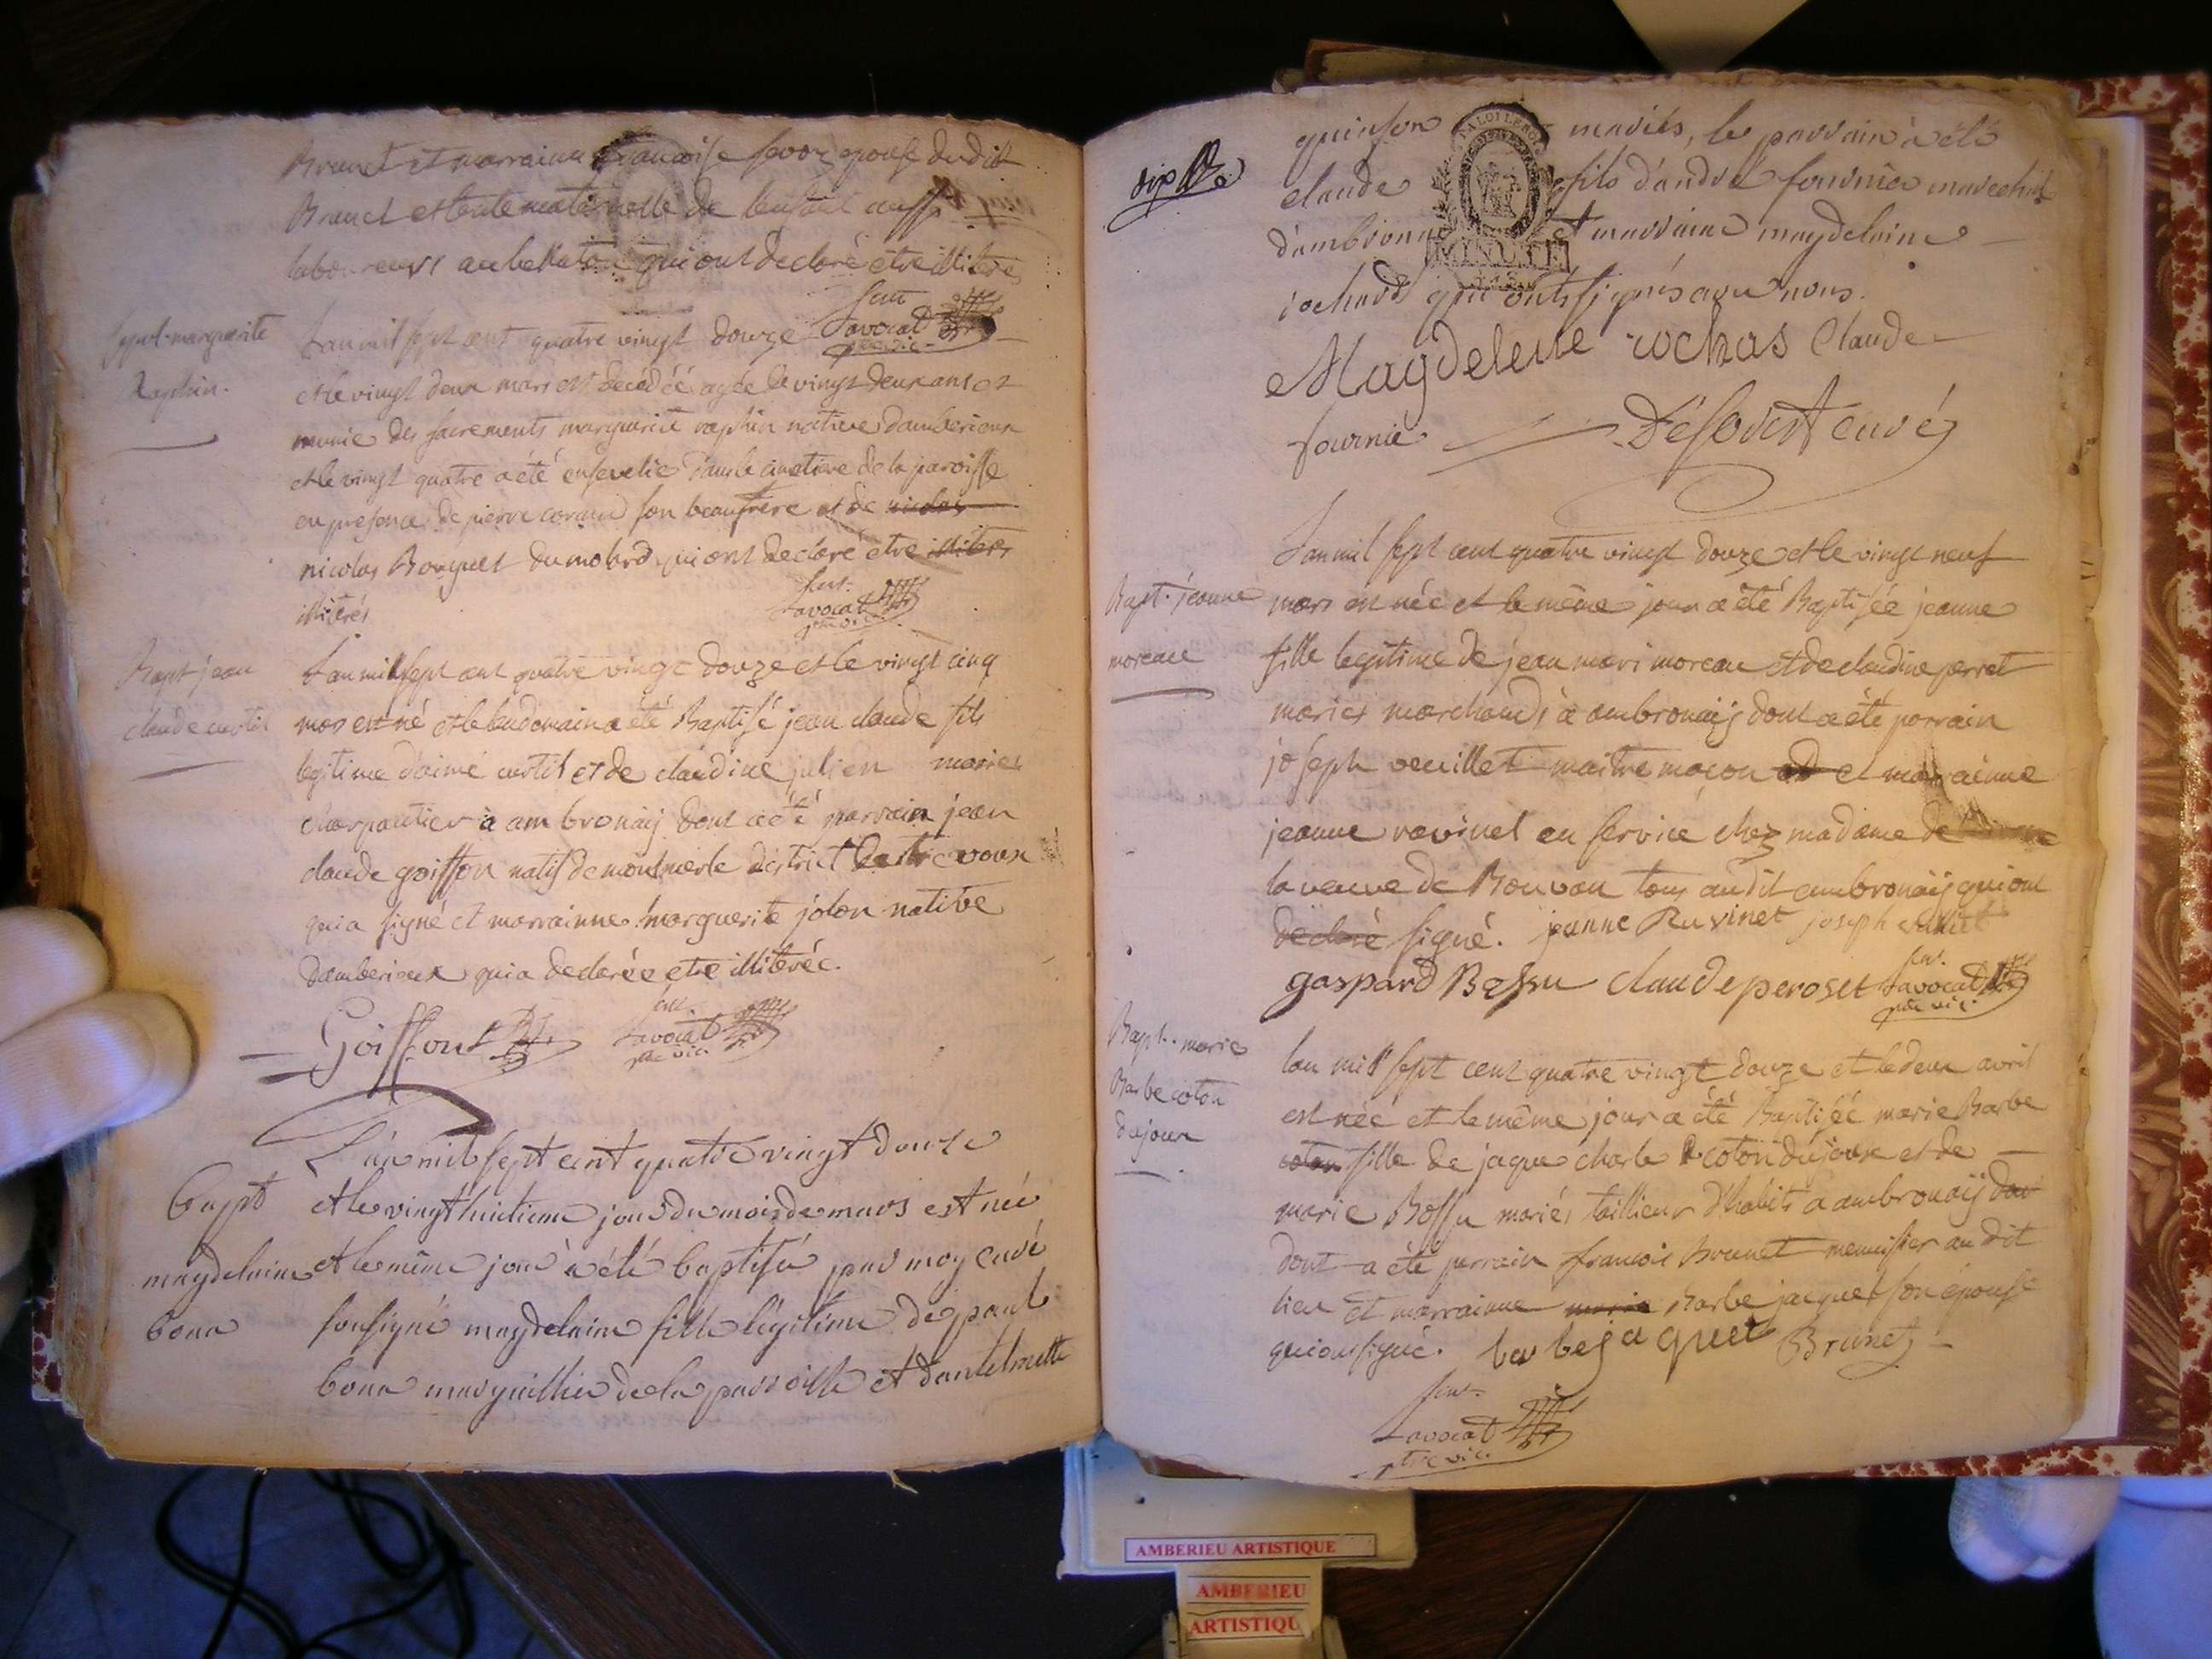 Brunet et marraine francoise sevoz epouse dudit
Brunet et tante maternelle de lenfant aussi
laboureurs au bellaton qui ont declaré etre illiteré
fran
Lavocat
ptre vic.
sepul. marguerite
Raphin.
Lan mil sept cent quatre vingt douze
et le vingt deux mars est decédéé agée de vingt deux ans et
munie des sacrements marguerite raphin native damberieux
et le vingt quatre a été ensevelie dans le cimetiere de la paroisse
en presence de pierre coraud son beaufrere et de nicolas
nicolas Bouquet du molard qui ont declaré etre illiteres
illiterés
fran.
Lavocat
ptre vic.
Bapt jean
claude curtil
Lan mil sept cent quatre vingt douze et le vingt cinq
mars est né et le lendemain a été Baptisé jean claude fils
legitime d'aimé curtil et de claudine julien mariés
charpantier à ambronaij dont a été parrain jean
claude goiffon natif de montmerle district de trevoux
qui a signé et marrainne marguerite jolon native
damberieux qui a declarée etre illiterée.
Goiffont
fran.
Lavocat
ptre vic
Bapt
magdelaine
bona
L'an mil sept cent quatre vingt douze
et le vingt huitieme jour du mois de mars est née
et le même jour a été baptisée par moy curé
soussigné magdelaine fille légitime de paul
bona marguillier de la parroisse et d'anthelmette
dix
quinson mariés, le parrain a été
claude fils d'andré fournier marechal
d'ambronay et marraine magdelaine
rochard qui ont signés avec nous.
Magdelene rochas Claude
fournie Désovert curé
LA LOI LE ROI
MINUTE
Bapt. jeanne
moreau
Lan mil sept cent quatre vingt douze et le vingt neuf
mars est née et le même jour a été Baptisée jeanne
fille legitime de jean mari moreau et de claudine perret
mariés marchands à ambronaij dont a été parrain
joseph veuillet maitre maçon et marrainne
jeanne ravinet en service chez madame de
la veuve de Bouvan tous audit ambronaij qui ont
declaré signé. jeanne Ruvinet joseph
gaspard Bossu claude peroset
fran.
Lavocat
ptre vic.
Bapt. marie
Barbe coton
dujoux
lan mil sept cent quatre vingt douze et le deux avril
est née et le même jour a été Baptisée marie Barbe
coton fille de jaque charle coton dujoux et de
marie Bossu mariés taillieur d'habits a ambronaij dont
dont a été parrain francois Brunet menuisier au dit
lieu et marrainne marie Barbe jacquet son épouse
qui ont signé. barbe jaquet Brunet
fran.
Lavocat
ptre vic.
AMBERIEU ARTISTIQUE
AMBERIEU
ARTISTIQU